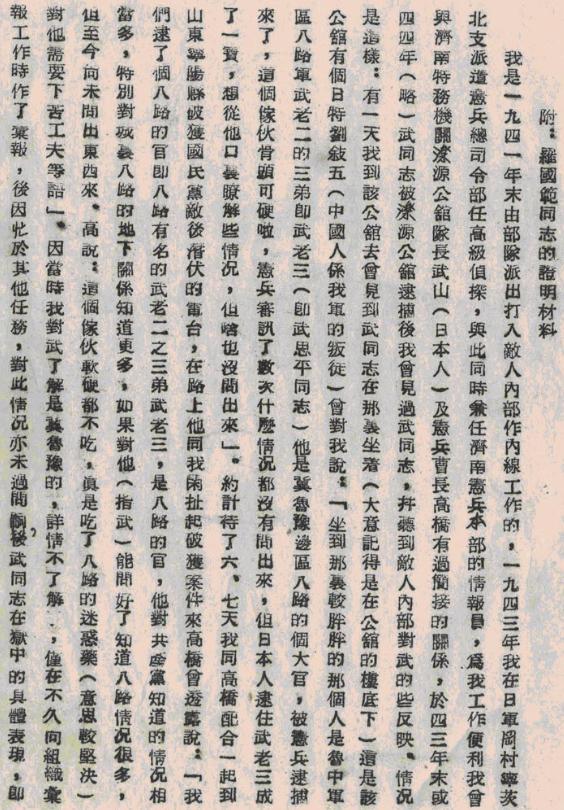 附：羅國範同志的證明材料
我是一九四一年末由部隊派出打入敵人內部作內線工作的，一九四三年我在日軍岡村寧茨
北支派遣憲兵總司令部任高級偵探，與此同時兼任濟南憲兵本部的情報員，爲我工作便利我曾
與濟南特務機關濼源公館隊長武山（日本人）及憲兵曹長高橋有過間接的關係，於四三年末或
四四年（略）武同志被濼源公館逮捕後我曾見過武同志，幷聽到敵人內部對武的些反映。情況
是這樣：有一天我到該公館去曾見到武同志在那裏坐着（大意記得是在公館的樓底下）這是該
公館有個日特劉敍五（中國人係我軍的叛徒）曾對我說：「坐到那裏較胖胖的那個人是魯中軍
區八路軍武老二的三弟卽武老三（卽武思平同志）他是冀魯豫邊區八路的個大官，被憲兵逮捕
來了，這個傢伙骨頭可硬啦，憲兵審訊了數次什麼情況都沒有問出來，但日本人逮住武老三成
了一寶，想從他口裏瞭解些情況，但啥也沒問出來」。約計待了六、七天我同高橋配合一起到
山東寧陽縣破獲國民黨敵後潛伏的電台，在路上他同我閑扯起破獲案件來高橋曾透露說：「我
們逮了個八路的官卽八路有名的武老二之三弟武老三，是八路的官，他對共產黨知道的情況相
當多，特別對城裏八路的地下關係知道更多，如果對他（指武）能問好了知道八路情況很多，
但至今尙未問出東西來。高說：這個傢伙軟硬都不吃，眞是吃了八路的迷惑藥（意思較堅決）
對他需要下苦工夫等語」。因當時我對武了解是冀魯豫的，詳情不了解．，僅在不久向組織彙
報工作時作了彙報，後因忙於其他任務，對此情況亦未過問，後武同志在獄中的具體表現，卽